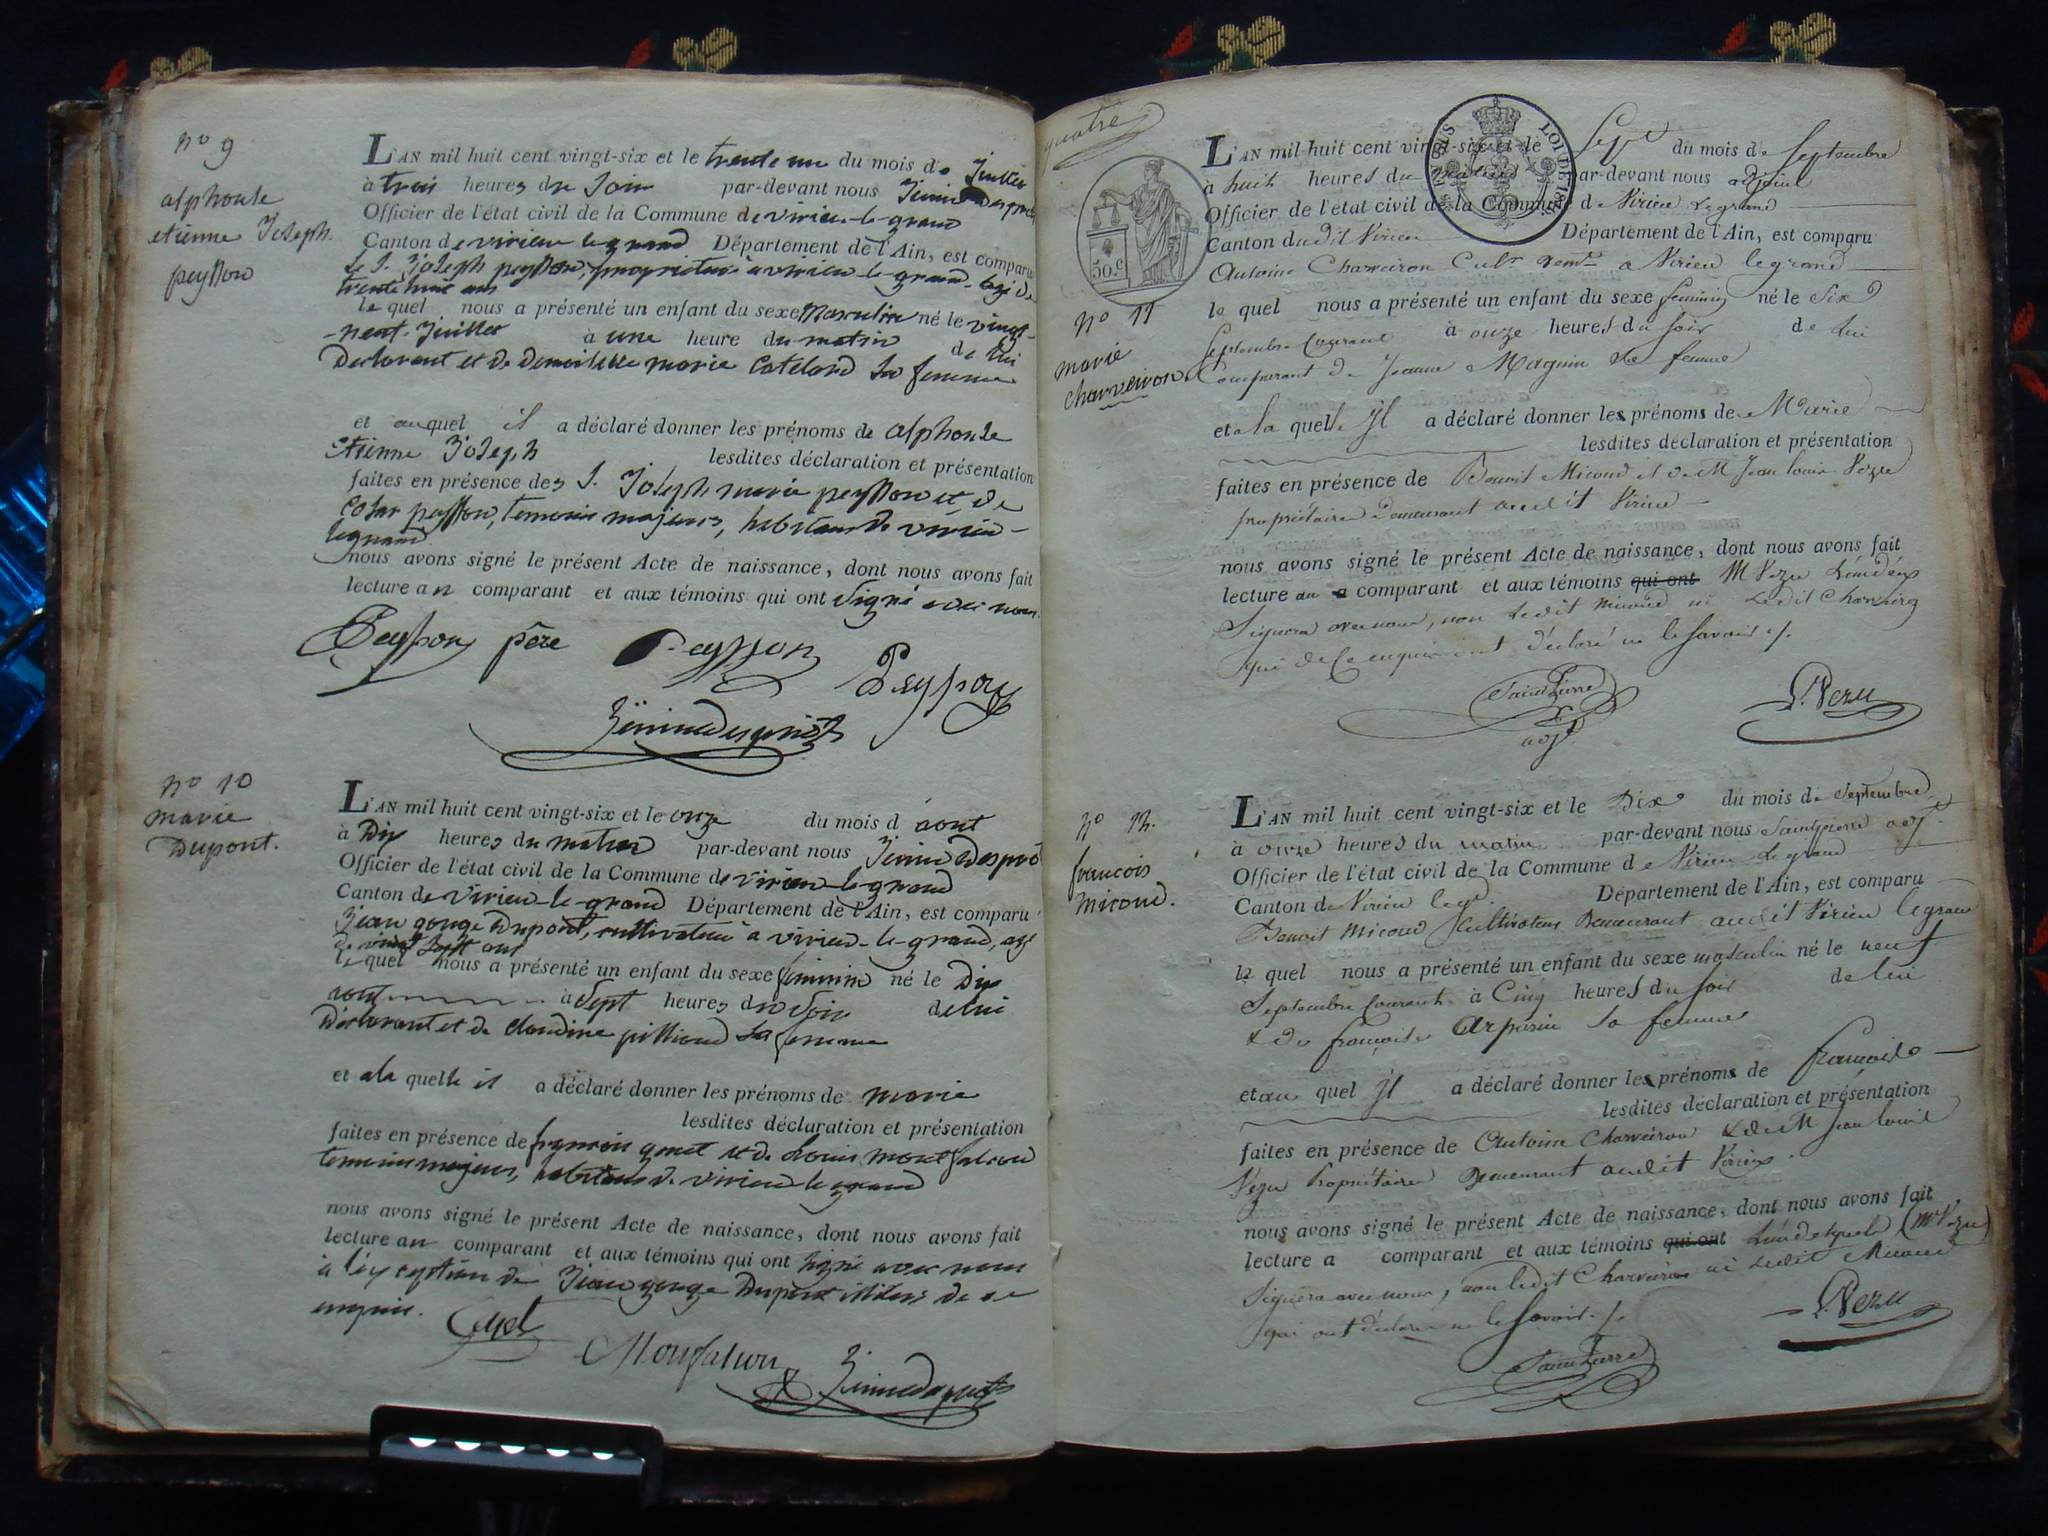 no 9
alphonse
etienne Joseph
peysson
L'AN mil huit cent vingt-six et le trente un du mois de Juillet
à trois heures du Soir par-devant nous
Officier de l'état civil de la Commune de virieu-le-grand
Canton de virieu le grand Département de l'Ain, est comparu
le S. Joseph peysson, proprietaire à virieu-le-grand, agé de
trente huit ans
le quel nous a présenté un enfant du sexe Masculin né le vingt
-neuf Juillet à une heure du matin de lui
Declarant et de Demoiselle marie Catelard Sa femme
et auquel il a déclaré donner les prénoms de alphonse
etienne Joseph lesdites déclaration et présentation
faites en présence des S. Joseph marie peysson et de
Cesar peysson, temoins majeurs, habitans de virieu-
legrand
nous avons signé le présent Acte de naissance, dont nous avons fait
lecture au comparant et aux témoins qui ont Signé avec nous.
Peysson père Peysson Peysson
no 10
marie
Dupont.
L'AN mil huit cent vingt-six et le onze du mois d'aout
à Dix heures du matin par-devant nous
Officier de l'état civil de la Commune de virieu-le grand
Canton de virieu-le-grand Département de l'Ain, est comparu
Jean gouge Dupont, cultivateur à virieu-le-grand, agé
de vingt Sept ans
le quel nous a présenté un enfant du sexe feminin né le Dix
aout à Sept heures du Soir de lui
Declarant et de claudine Sa femme
et a la quelle il a déclaré donner les prénoms de marie
lesdites déclaration et présentation
faites en présence de françois et de Louis montfalcon
temoins majeurs, habitans de virieu le grand
nous avons signé le présent Acte de naissance, dont nous avons fait
lecture au comparant et aux témoins qui ont signé avec nous
à l'exception de Jean gouge Dupont illiteré de ce
enquis.
quatre
STRE EN SUS LOI DE 1816
50.c
no 11
marie
charveiron.
L'AN mil huit cent vingt-six et le Sept du mois de Septembre
à huit heures du matin par-devant nous adjoint
Officier de l'état civil de la Commune de Virieu Legrand
Canton dudit Virieu Département de l'Ain, est comparu
Antoine Charveiron Cultr demt a Virieu legrand
le quel nous a présenté un enfant du sexe feminin né le Six
Septembre Courant à onze heures du soir de lui
Comparant & de Jeanne Maguin sa femme
et a la quelle jl a déclaré donner les prénoms de Marie
lesdites déclaration et présentation
faites en présence de Benoit Micoud et de M Jean louis Vezu
propriétaire Demeurant audit Virieu
nous avons signé le présent Acte de naissance, dont nous avons fait
lecture au comparant et aux témoins qui ont M Vezu L'un d'eux
Signera avec nous, non Ledit Micoud ni Ledit Charveiron
qui de Ce enquis ont déclaré ne le Savoir ./.
Saint Pierre L. Vezu
adjt
no 12.
francois
micoud.
L'AN mil huit cent vingt-six et le Dix du mois de Septembre
à onze heures du matin par-devant nous Saintpierre adjt
Officier de l'état civil de la Commune de Virieu Legrand
Canton de Virieu legd. Département de l'Ain, est comparu
Benoit Micoud Cultivateur Demeurant audit Virieu legrand
le quel nous a présenté un enfant du sexe masculin né le neuf
Septembre Courant à Cinq heures du soir de lui
& de françoise Arpurin sa femme
et au quel jl a déclaré donner les prénoms de francois
lesdites déclaration et présentation
faites en présence de Antoine Charveiron & de M Jean louis
Vezu Propriétaire Demeurant audit Virieu
nous avons signé le présent Acte de naissance, dont nous avons fait
lecture a comparant et aux témoins qui ont L'un desquels (Mr Vezu)
Signera avec nous, non ledit Charveiron ni Ledit Micoud
qui ont déclaré ne le Savoir ./.
L. Vezu
Saint Pierre